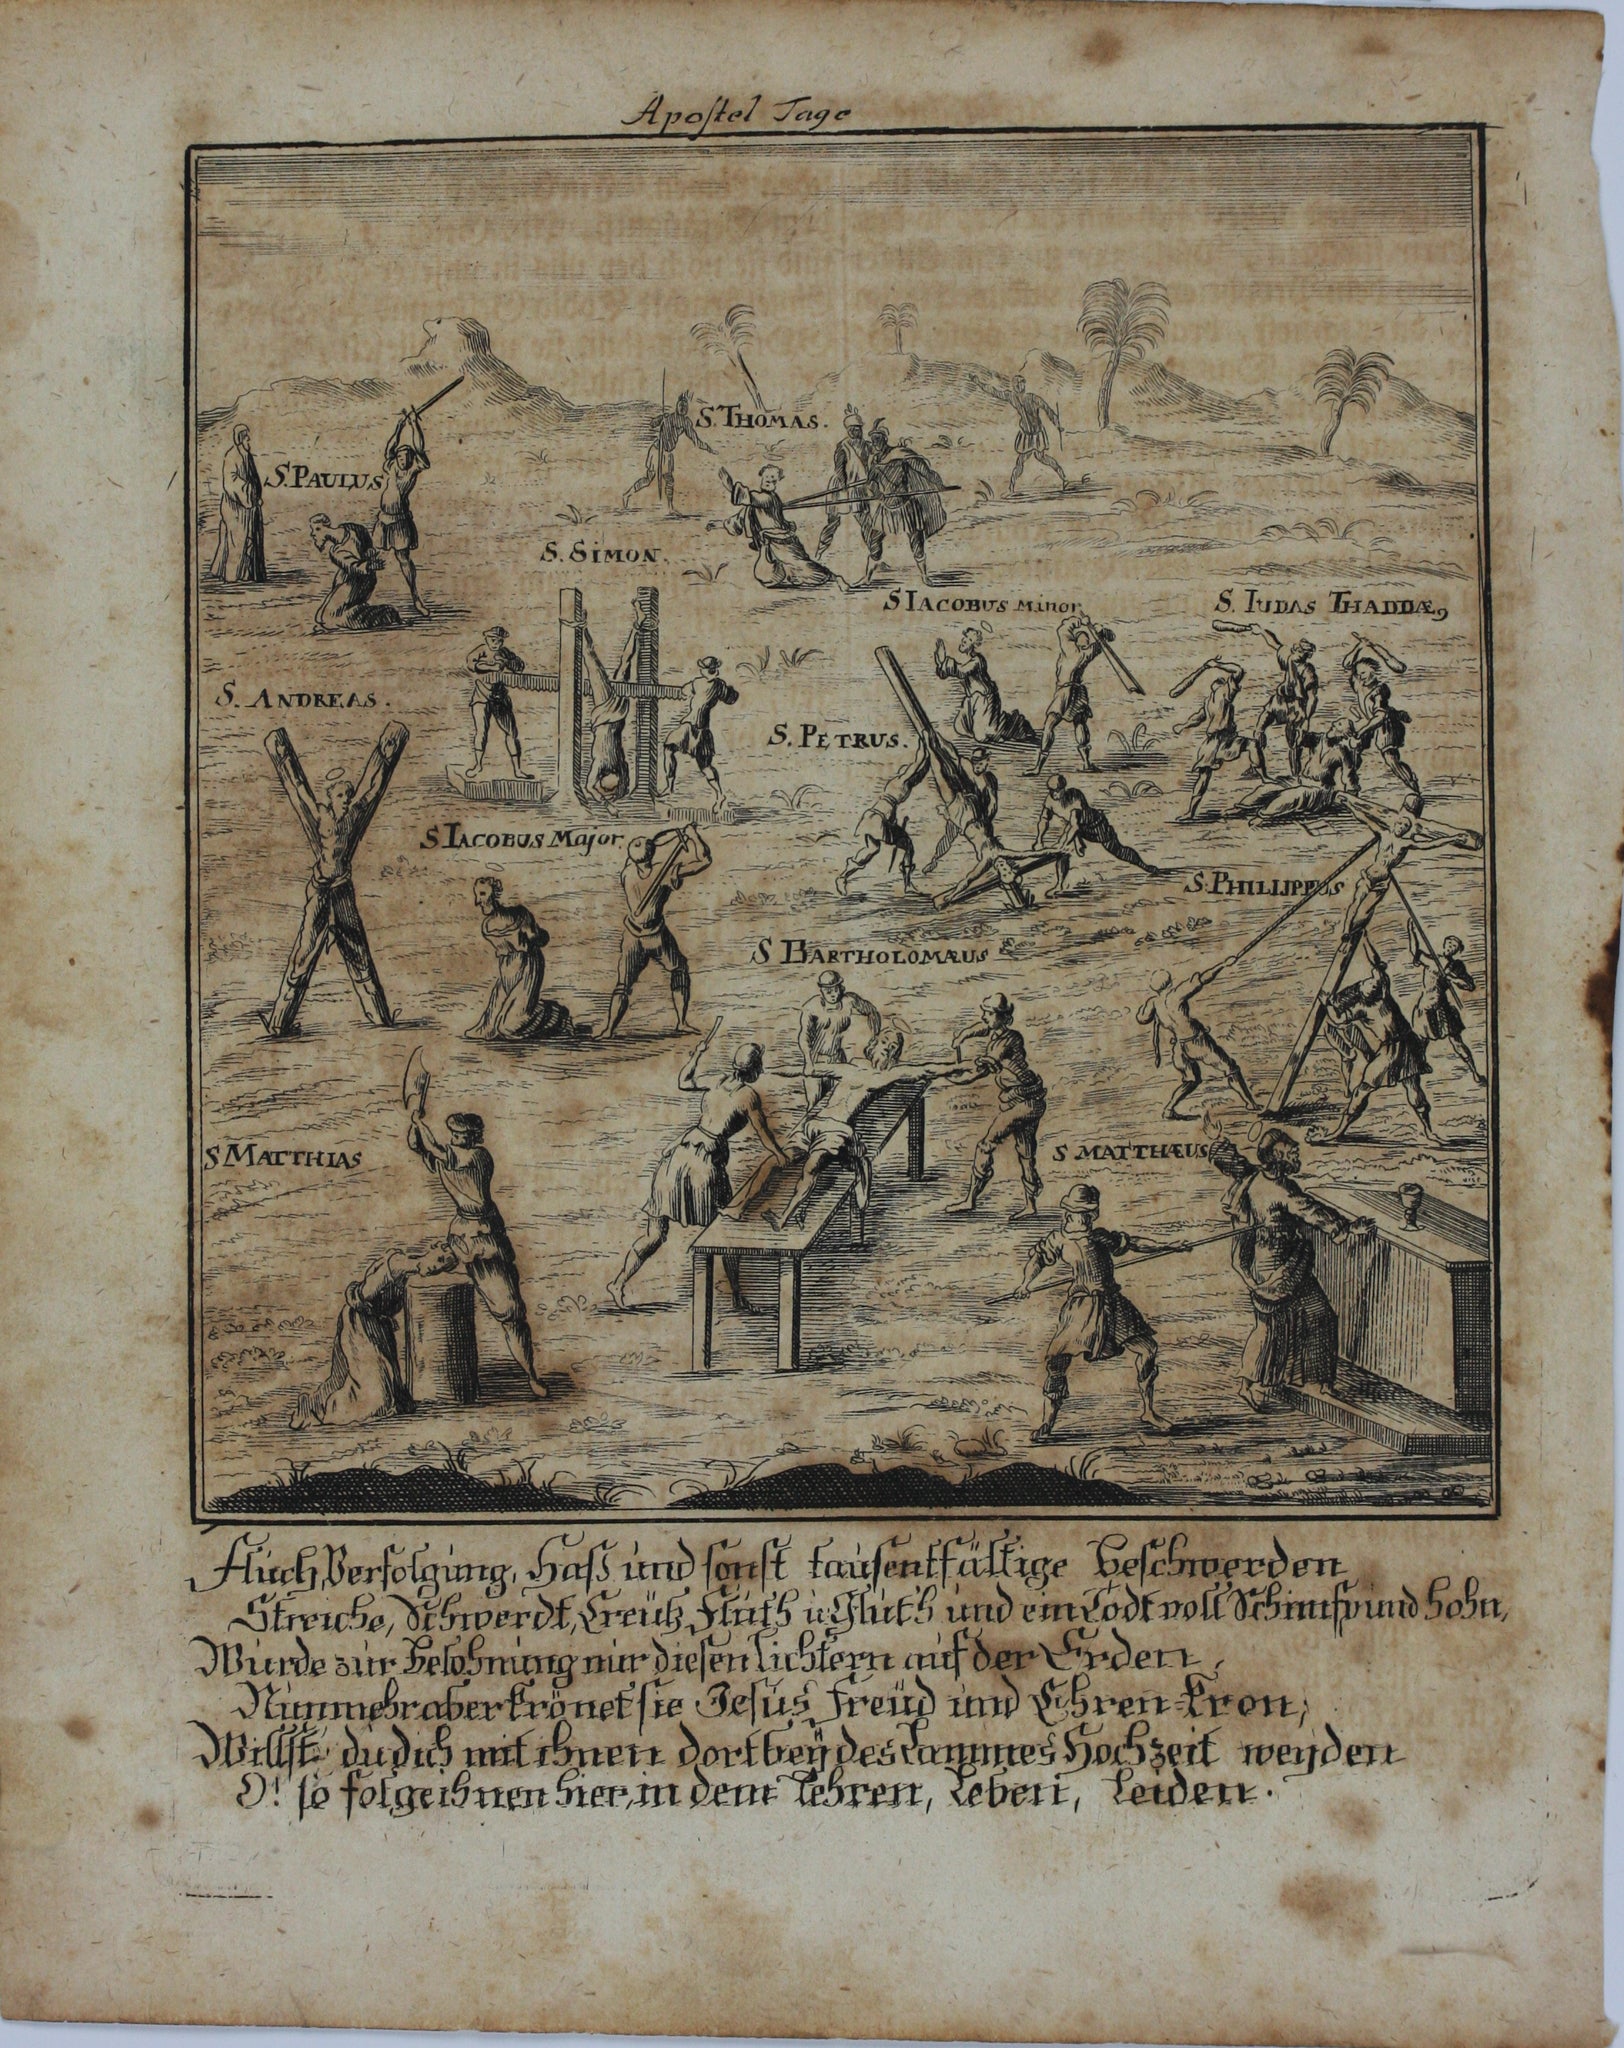 Apostel Tage
S. THOMAS.
S. PAULUS
S. SIMON.
S IACOBUS Minor
S. IUDAS THADDÆ9
S. ANDREAS.
S. PETRUS.
S IACOBUS Major.
S. PHILIPPUS
S BARTHOLOMÆUS
S MATTHIAS
S MATTHÆUS
Fluch, Verfolgung, Haß und sonst tausentfältige Beschwerden
Streiche, Schwerdt, Creütz, Fluth u: Gluth und ein Todt voll Schimpf und Hohn,
Wurde zur Belohnung nur diesen Lichtern auf der Erden,
Nunmehr aber krönet sie Jesus Freüd und Ehren-Cron;
Willst du dich mit ihnen dort beÿ des Lammes Hochzeit weÿden
O! so folge ihnen hier, in dem Lehren, Leben, Leiden.